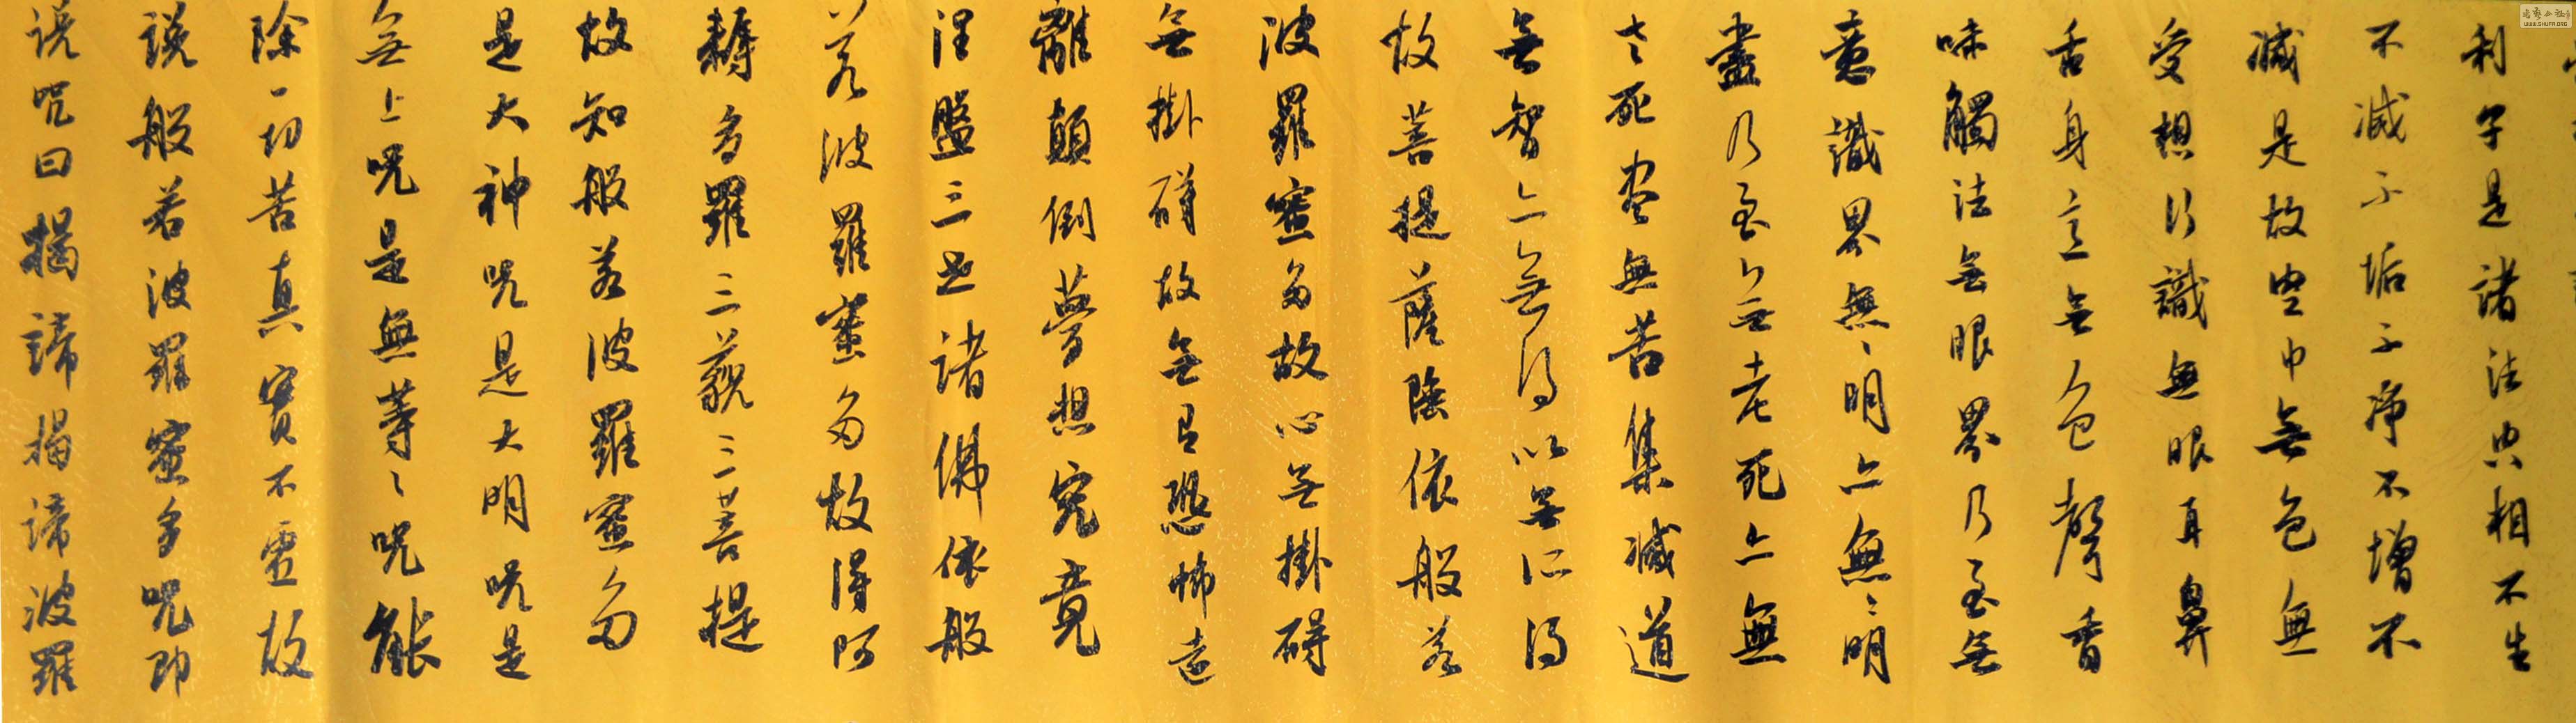 利子是諸法空相不生
不滅不垢不淨不增不
減是故空中無色無
受想行識無眼耳鼻
舌身意無色聲香
味觸法無眼界乃至無
意識界無〻明亦無〻明
盡乃至無老死亦無
老死盡無苦集滅道
無智亦無得以無所得
故菩提薩陲依般若
波羅蜜多故心無掛碍
無掛碍故無有恐怖遠
離顛倒夢想究竟
涅盤三世諸佛依般
若波羅蜜多故得阿
耨多羅三藐三菩提
故知般若波羅蜜多
是大神咒是大明咒是
無上咒是無等〻咒能
除一切苦真實不虛故
說般若波羅蜜多咒即
说咒曰揭諦揭諦波羅
WWW.SHUFA.ORG